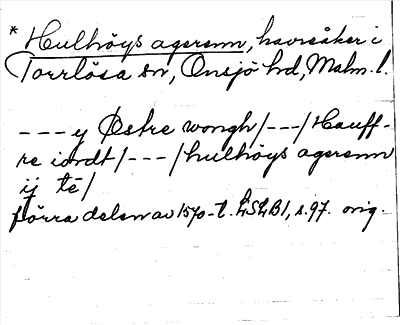 * Hulhöys agerenn, havreåker i
Torrlösa sn, Onsjö hd, Malm. l.
--- y Østre wongh/---/Hauff-
re iordt/---/hulhöys agerenn
ij tē/
förra delen av 1570-t. LSLB1, s. 97. orig.